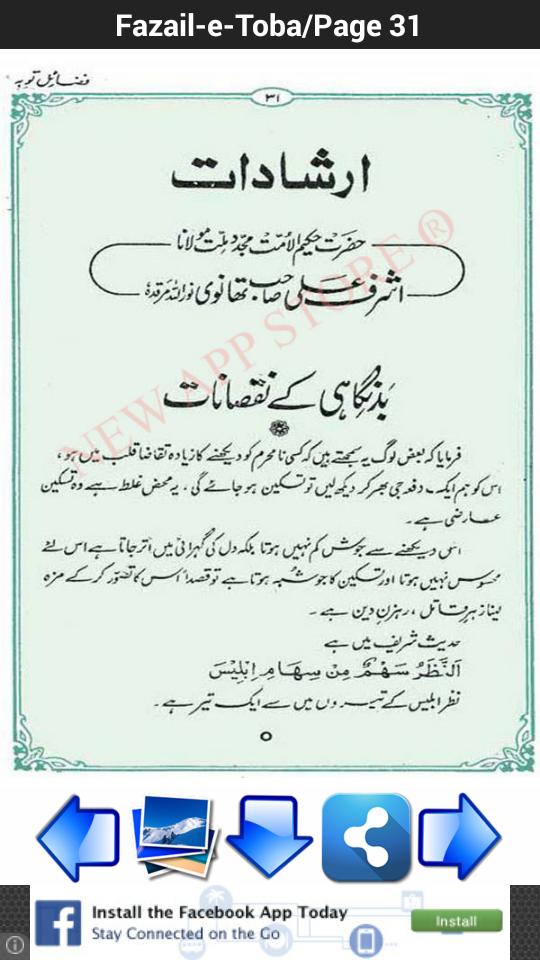 Fazail-e-Toba/Page 31
فضائل توبہ
۳۱
ارشادات
حضرت حکیم الامت مجدد ملت مولانا
اشرف علی صاحب تھانوی نوراللہ مرقدہٗ
بدنگاہی کے نقصانات
فرمایا کہ بعض لوگ یہ سمجھتے ہیں کہ کسی نامحرم کو دیکھنے کا زیادہ تقاضا قلب میں ہو،
اس کو ہم ایک دفعہ جی بھر کر دیکھ لیں تو تسکین ہو جائے گی۔ یہ محض غلط ہے وہ تسکین
عارضی ہے۔
اس دیکھنے سے جوش کم نہیں ہوتا بلکہ دل کی گہرائی میں اُتر جاتا ہے اس لئے
محسوس نہیں ہوتا اور تسکین کا جو شبہ ہوتا ہے تو قصداً اس کا تصوّر کر کے مزہ
لینا زہر قاتل، رہزن دین ہے۔
حدیث شریف میں ہے
اَلنَّظَرُ سَهْمٌ مِنْ سِهَامِ اِبْلِيْسَ
نظر ابلیس کے تیروں میں سے ایک تیر ہے۔
NEW APP STORE ®
Install the Facebook App Today
Stay Connected on the Go
Install